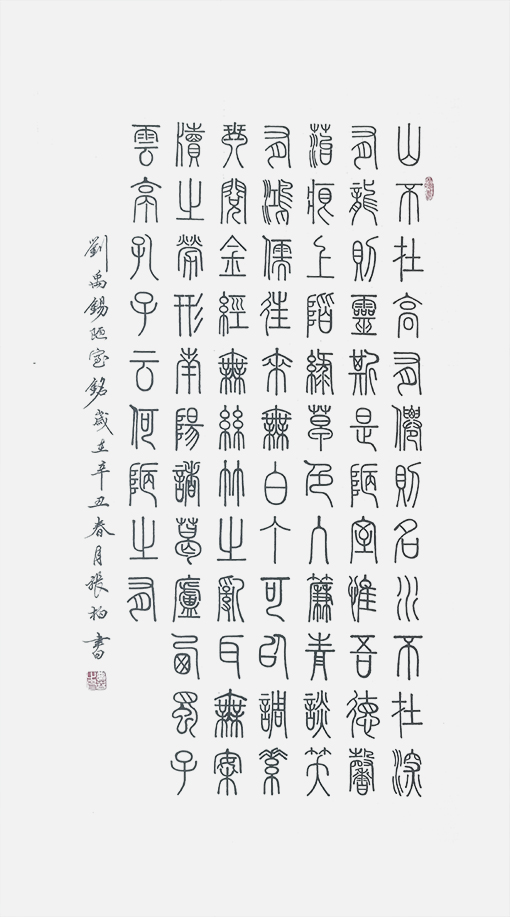 山不在高有僊則名水不在深
有龍則靈斯是陋室惟吾德馨
苔痕上階綠草色入簾青談笑
有鴻儒往來無白丁可以調素
琴閱金經無絲竹之亂耳無案
牘之勞形南陽諸葛廬西蜀子
雲亭孔子云何陋之有
劉禹錫陋室銘歲在辛丑春月張柏書